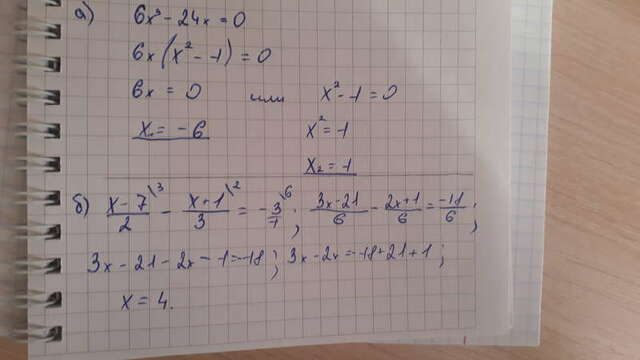 а) 6x³ - 24x = 0
6x(x² - 1) = 0
6x = 0 или x² - 1 = 0
x₁ = -6 x² = 1
x₂ = -1
б) x - 7/2 \3 - x + 1/3 \2 = -3/1 \6; 3x - 21/6 - 2x + 1/6 = -18/6;
3x - 21 - 2x - 1 = -18; 3x - 2x = -18 + 21 + 1;
x = 4.